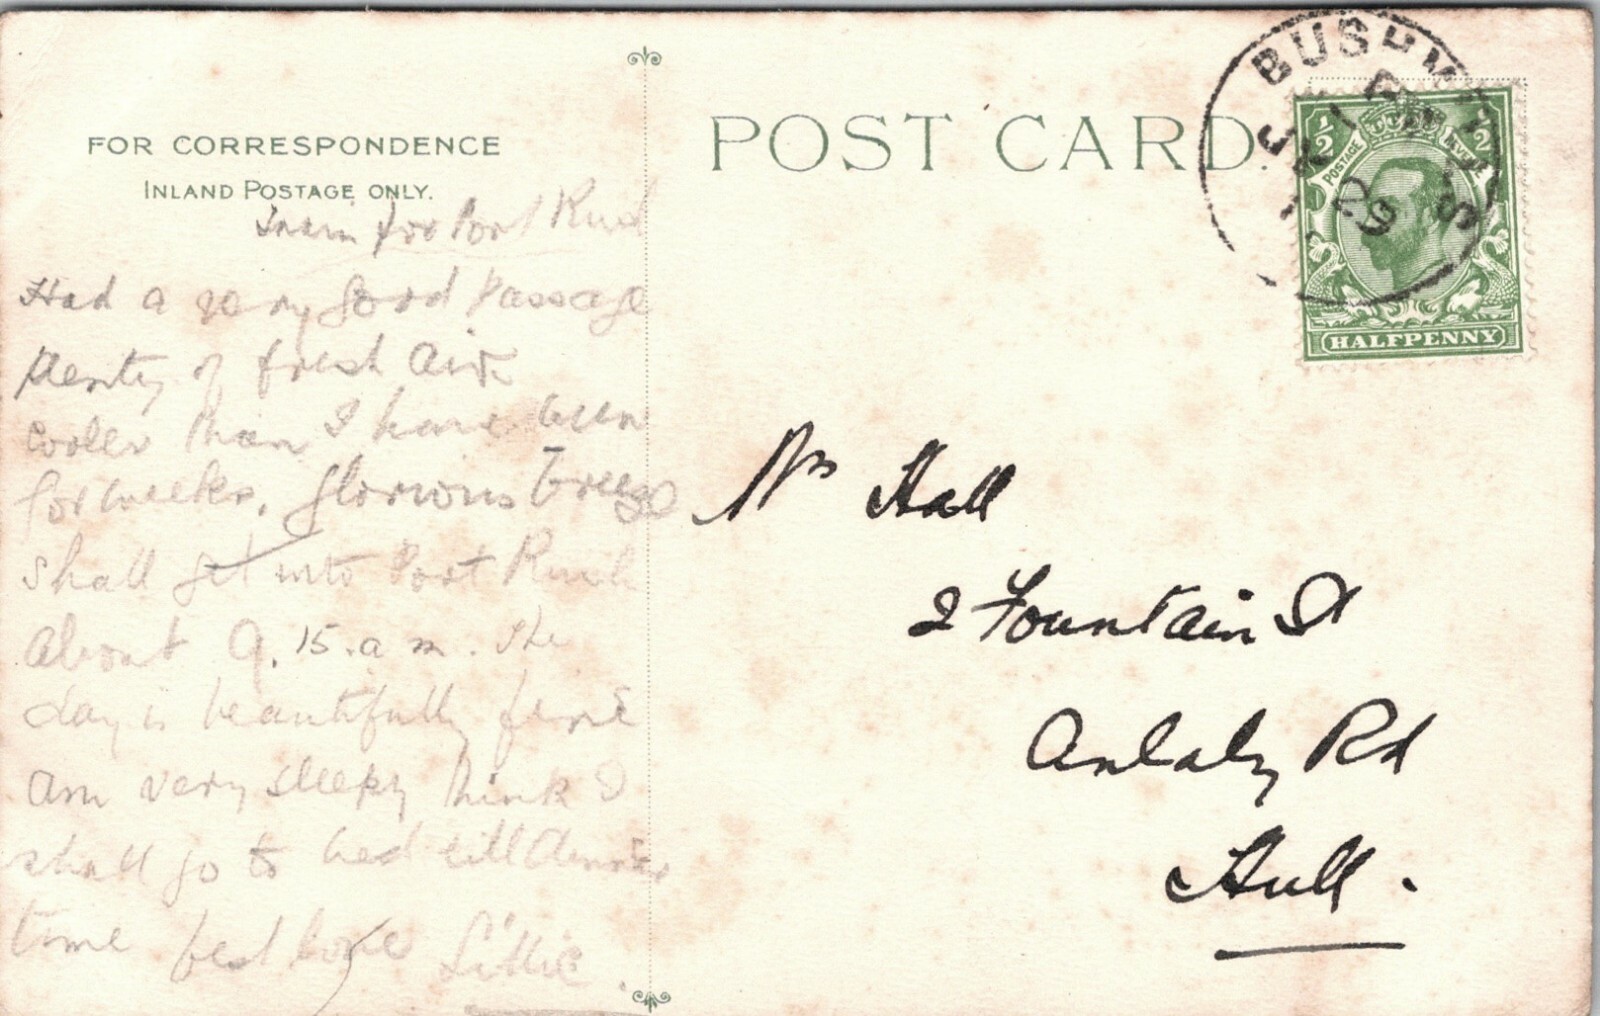 FOR CORRESPONDENCE
INLAND POSTAGE ONLY.
Train for Port Rush
Had a very good passage
plenty of fresh air
cooler than I have been
for weeks, glorious breeze
shall get into Port Rush
about 9.15.a m. the
day is beautifully fine
am very sleepy think I
shall go to bed till dinner
time best love Lillie.
POST CARD.
BUSHMILLS
½ POSTAGE REVENUE ½
HALFPENNY
Mrs Hall
2 Fountain St
Anlaby Rd
Hull.